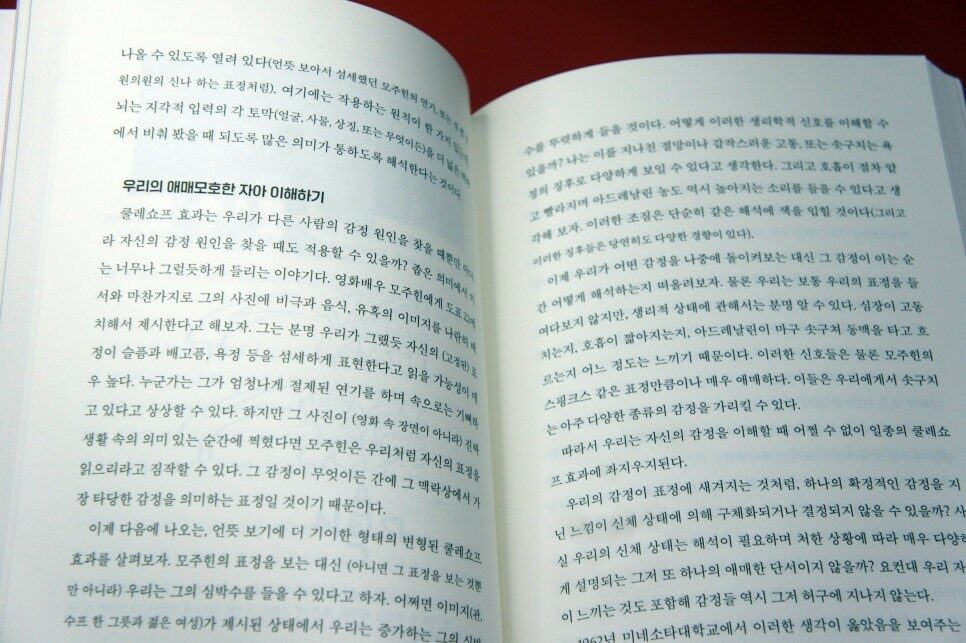 나올 수 있도록 열려 있다(언뜻 보아서 섬세했던 모주힌의 연기, 또는
원의원의 신나 하는 표정처럼). 여기에는 작용하는 원칙이 한 가지
뇌는 지각적 입력의 각 토막(얼굴, 사물, 상징, 또는 무엇이든)을 더 넓은
에서 비춰 봤을 때 되도록 많은 의미가 통하도록 해석한다는 것이다.
우리의 애매모호한 자아 이해하기
쿨레쇼프 효과는 우리가 다른 사람의 감정 원인을 찾을 때뿐만 아니
라 자신의 감정 원인을 찾을 때도 적용할 수 있을까? 좁은 의미에서 이
는 너무나 그럴듯하게 들리는 이야기다. 영화배우 모주힌에게 도표 22에
서와 마찬가지로 그의 사진에 비극과 음식, 유혹의 이미지를 나란히 배
치해서 제시한다고 해보자. 그는 분명 우리가 그랬듯 자신의 (고정된) 표
정이 슬픔과 배고픔, 욕정 등을 섬세하게 표현한다고 읽을 가능성이 매
우 높다. 누군가는 그가 엄청나게 절제된 연기를 하며 속으로는 기뻐하
고 있다고 상상할 수 있다. 하지만 그 사진이 (영화 속 장면이 아니라) 진짜
생활 속의 의미 있는 순간에 찍혔다면 모주힌은 우리처럼 자신의 표정을
읽으리라고 짐작할 수 있다. 그 감정이 무엇이든 간에 그 맥락상에서 가
장 타당한 감정을 의미하는 표정일 것이기 때문이다.
이제 다음에 나오는, 언뜻 보기에 더 기이한 형태의 변형된 쿨레쇼프
효과를 살펴보자. 모주힌의 표정을 보는 대신 (아니면 그 표정을 보는 것뿐
만 아니라) 우리는 그의 심박수를 들을 수 있다고 하자. 어쩌면 이미지(관,
수프 한 그릇과 젊은 여성)가 제시된 상태에서 우리는 증가하는 그의 심박
수를 뚜렷하게 들을 것이다. 어떻게 이러한 생리학적 신호를 이해할 수
있을까? 나는 이를 지나친 절망이나 갑작스러운 고통, 또는 솟구치는 욕
정의 징후로 다양하게 보일 수 있다고 생각한다. 그리고 호흡이 점차 얕
고 빨라지며 아드레날린 농도 역시 높아지는 소리를 들을 수 있다고 생
각해 보자. 이러한 조짐은 단순히 같은 해석에 색을 입힐 것이다(그리고
이러한 징후들은 당연히도 다양한 경향이 있다).
이제 우리가 어떤 감정을 나중에 돌이켜보는 대신 그 감정이 이는 순
간 어떻게 해석하는지 떠올려보자. 물론 우리는 보통 우리의 표정을 들
여다보지 않지만, 생리적 상태에 관해서는 분명 알 수 있다. 심장이 고동
치는지, 호흡이 짧아지는지, 아드레날린이 마구 솟구쳐 동맥을 타고 흐
르는지 어느 정도는 느끼기 때문이다. 이러한 신호들은 물론 모주힌의
스핑크스 같은 표정만큼이나 매우 애매하다. 이들은 우리에게서 솟구치
는 아주 다양한 종류의 감정을 가리킬 수 있다.
따라서 우리는 자신의 감정을 이해할 때 어쩔 수 없이 일종의 쿨레쇼
프 효과에 좌지우지된다.
우리의 감정이 표정에 새겨지는 것처럼, 하나의 확정적인 감정을 지
닌 느낌이 신체 상태에 의해 구체화되거나 결정되지 않을 수 있을까? 사
실 우리의 신체 상태는 해석이 필요하며 처한 상황에 따라 매우 다양하
게 설명되는 그저 또 하나의 애매한 단서이지 않을까? 요컨대 우리 자
이 느끼는 것도 포함해 감정들 역시 그저 허구에 지나지 않는다.
1962년 미네소타대학교에서 이러한 생각이 옳았음을 보여주는